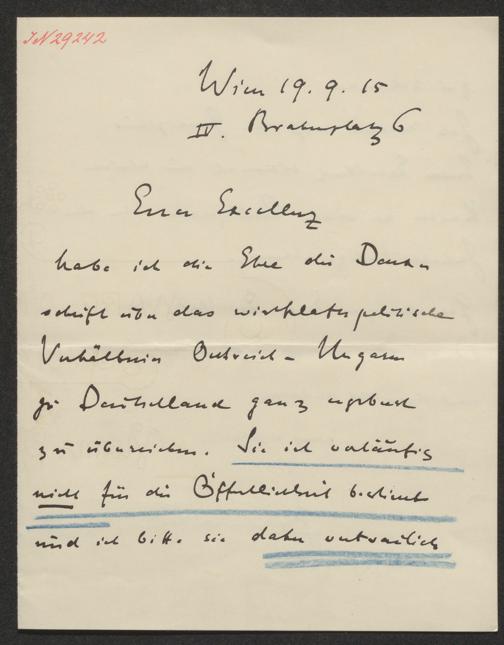 IN 29242
Wien 19. 9. 15
IV. Brahmsplatz 6
Euer Excellenz
habe ich die Ehre die Denk-
schrift über das wirtschaftspolitische
Verhältnis Österreich-Ungarn
zu Deutschland ganz ergebenst
zu überreichen. Sie ist vorläufig
nicht für die Öffentlichkeit bestimmt
und ich bitte sie daher vertraulich